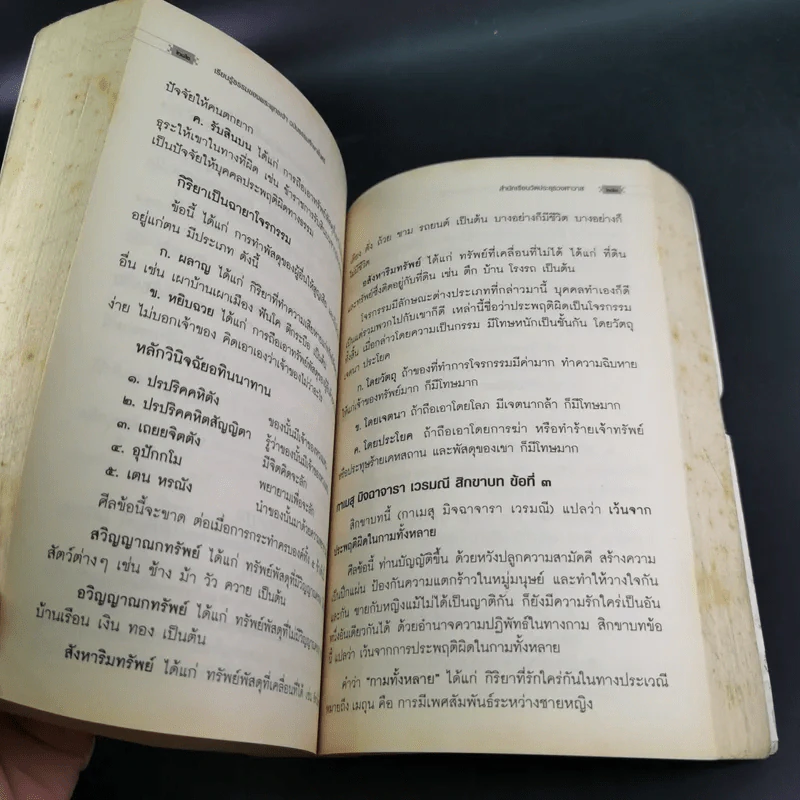 เรียนรู้ธรรมของพระพุทธเจ้า
ปัจจัยให้คนตกยาก
ค. รับสินบน ได้แก่ การถือเอาทรัพย์
ธุระให้เขาในทางที่ผิด เช่น ข้าราชการรับสินบน
เป็นปัจจัยให้บุคคลประพฤติผิดทางธรรม
กิริยาเป็นฉายาโจรกรรม
ข้อนี้ ได้แก่ การทำพัสดุของผู้อื่นให้สูญเสีย
อยู่แก่ตน มีประเภท ดังนี้
ก. ผลาญ ได้แก่ กิริยาที่ทำความเสียหาย
อื่น เช่น เผาบ้านเผาเมือง ฟันโค ตีกระบือ เป็นต้น
ข. หยิบฉวย ได้แก่ การถือเอาทรัพย์พัสดุของผู้อื่น
ง่าย ไม่บอกเจ้าของ คิดเอาเองว่าเจ้าของไม่ว่าอะไร
หลักวินิจฉัยอทินนาทาน
๑. ปรปริคคหิตัง ของนั้นมีเจ้าของ
๒. ปรปริคคหิตสัญญิตา รู้ว่าของนั้นมีเจ้าของ
๓. เถยยจิตตัง มีจิตคิดจะลัก
๔. อุปักกโม พยายามเพื่อจะลัก
๕. เตน หรณัง นำของนั้นมาด้วยความ
ศีลข้อนี้จะขาด ต่อเมื่อการกระทำครบองค์ทั้ง ๕
สวิญญาณกทรัพย์ ได้แก่ ทรัพย์พัสดุที่มีวิญญาณ
สัตว์ต่างๆ เช่น ช้าง ม้า วัว ควาย เป็นต้น
อวิญญาณกทรัพย์ ได้แก่ ทรัพย์พัสดุที่ไม่มีวิญญาณ
บ้านเรือน เงิน ทอง เป็นต้น
สังหาริมทรัพย์ ได้แก่ ทรัพย์พัสดุที่เคลื่อนที่ได้ เช่น
สำนักเรียนวัดประยุรวงศาวาส
เตียง ตั่ง ถ้วย ชาม รถยนต์ เป็นต้น บางอย่างก็มีชีวิต บางอย่างก็
ไม่มีชีวิต
อสังหาริมทรัพย์ ได้แก่ ทรัพย์ที่เคลื่อนที่ไม่ได้ ได้แก่ ที่ดิน
และทรัพย์ซึ่งติดอยู่กับที่ดิน เช่น ตึก บ้าน โรงรถ เป็นต้น
โจรกรรมมีลักษณะต่างประเภทที่กล่าวมานี้ บุคคลทำเองก็ดี
เป็นแต่รวมพวกไปกับเขาก็ดี เหล่านี้ชื่อว่าประพฤติผิดเป็นโจรกรรม
ทั้งสิ้น เมื่อกล่าวโดยความเป็นกรรม มีโทษหนักเป็นชั้นกัน โดยวัตถุ
เจตนา ประโยค
ก. โดยวัตถุ ถ้าของที่ทำการโจรกรรมมีค่ามาก ทำความฉิบหาย
ให้แก่เจ้าของทรัพย์มาก ก็มีโทษมาก
ข. โดยเจตนา ถ้าถือเอาโดยโลภ มีเจตนากล้า ก็มีโทษมาก
ค. โดยประโยค ถ้าถือเอาโดยการฆ่า หรือทำร้ายเจ้าทรัพย์
หรือประทุษร้ายเคหสถาน และพัสดุของเขา ก็มีโทษมาก
กาเมสุ มิจฉาจารา เวรมณี สิกขาบท ข้อที่ ๓
สิกขาบทนี้ (กาเมสุ มิจฉาจารา เวรมณี) แปลว่า เว้นจาก
ประพฤติผิดในกามทั้งหลาย
ศีลข้อนี้ ท่านบัญญัติขึ้น ด้วยหวังปลูกความสามัคคี สร้างความ
เป็นปึกแผ่น ป้องกันความแตกร้าวในหมู่มนุษย์ และทำให้วางใจกัน
และกัน ชายกับหญิงแม้ไม่ได้เป็นญาติกัน ก็ยังมีความรักใคร่เป็นอัน
หนึ่งอันเดียวกันได้ ด้วยอำนาจความปฏิพัทธ์ในทางกาม สิกขาบทข้อ
นี้ แปลว่า เว้นจากการประพฤติผิดในกามทั้งหลาย
คำว่า “กามทั้งหลาย” ได้แก่ กิริยาที่รักใคร่กันในทางประเวณี
หมายถึง เมถุน คือ การมีเพศสัมพันธ์ระหว่างชายหญิง